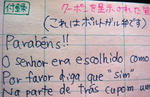 付録 クーポンを呈示された
(これはポルトガル語です)
Parabéns!!
O senhor era escolhido como
Por favor diga que "sim"
Na parte de trás cupom um